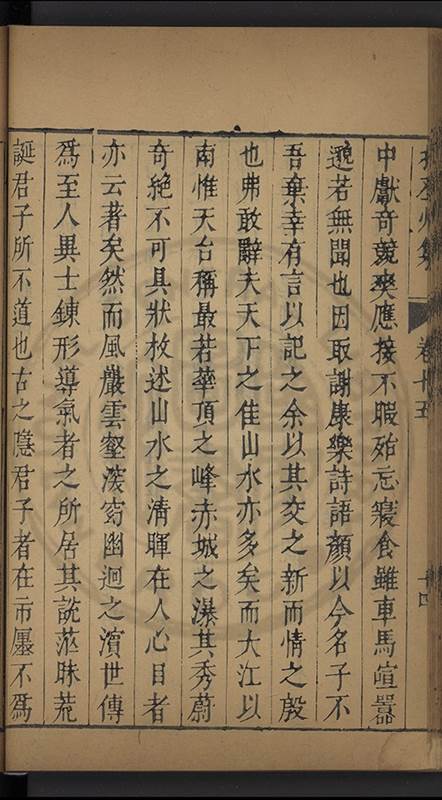 卷十五
十四
中獻奇競爽應接不暇殆忘寢食雖車馬喧囂
邈若無聞也因取謝康樂詩語顏以今名子不
吾棄幸有言以記之余以其交之新而情之殷
也弗敢辭夫天下之佳山水亦多矣而大江以
南惟天台稱最若華頂之峰赤城之瀑其秀蔚
奇絶不可具狀枚述山水之清暉在人心目者
亦云著矣然而風巖雲壑深窈幽迥之濱世傳
爲至人異士鍊形導氣者之所居其說茫昧荒
誕君子所不道也古之隱君子者在市廛不爲